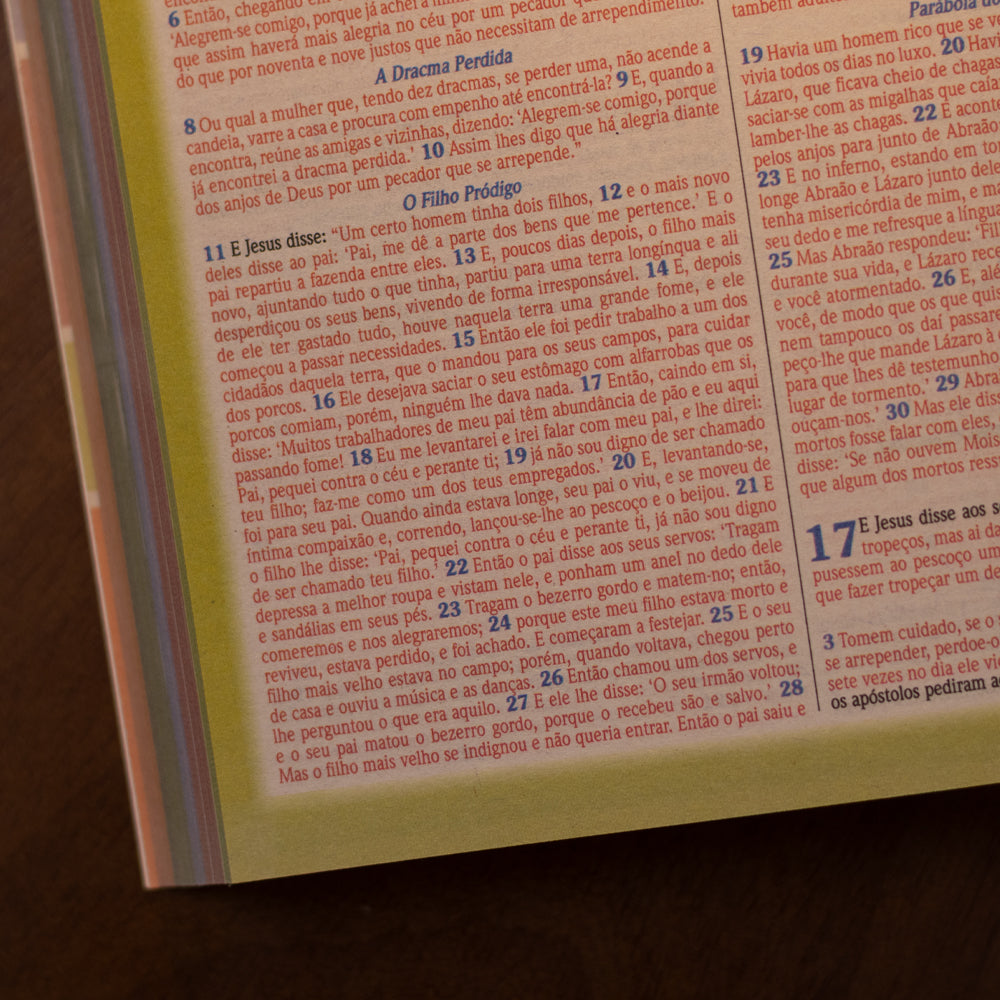 6 Então, chegando em
'Alegrem-se comigo, porque já achei a
que assim haverá mais alegria no céu por um pecador
do que por noventa e nove justos que não necessitam de arrependimento.
A Dracma Perdida
8 Ou qual a mulher que, tendo dez dracmas, se perder uma, não acende a
candeia, varre a casa e procura com empenho até encontrá-la? 9 E, quando a
encontra, reúne as amigas e vizinhas, dizendo: 'Alegrem-se comigo, porque
já encontrei a dracma perdida.' 10 Assim lhes digo que há alegria diante
dos anjos de Deus por um pecador que se arrepende."
O Filho Pródigo
11 E Jesus disse: "Um certo homem tinha dois filhos, 12 e o mais novo
deles disse ao pai: 'Pai, me dê a parte dos bens que me pertence.' E o
pai repartiu a fazenda entre eles. 13 E, poucos dias depois, o filho mais
novo, ajuntando tudo o que tinha, partiu para uma terra longínqua e ali
desperdiçou os seus bens, vivendo de forma irresponsável. 14 E, depois
de ele ter gastado tudo, houve naquela terra uma grande fome, e ele
começou a passar necessidades. 15 Então ele foi pedir trabalho a um dos
cidadãos daquela terra, que o mandou para os seus campos, para cuidar
dos porcos. 16 Ele desejava saciar o seu estômago com alfarrobas que os
porcos comiam, porém, ninguém lhe dava nada. 17 Então, caindo em si,
disse: 'Muitos trabalhadores de meu pai têm abundância de pão e eu aqui
passando fome! 18 Eu me levantarei e irei falar com meu pai, e lhe direi:
Pai, pequei contra o céu e perante ti; 19 já não sou digno de ser chamado
teu filho; faz-me como um dos teus empregados.' 20 E, levantando-se,
foi para seu pai. Quando ainda estava longe, seu pai o viu, e se moveu de
íntima compaixão e, correndo, lançou-se-lhe ao pescoço e o beijou. 21 E
o filho lhe disse: 'Pai, pequei contra o céu e perante ti, já não sou digno
de ser chamado teu filho.' 22 Então o pai disse aos seus servos: 'Tragam
depressa a melhor roupa e vistam nele, e ponham um anel no dedo dele
e sandálias em seus pés. 23 Tragam o bezerro gordo e matem-no; então,
comeremos e nos alegraremos; 24 porque este meu filho estava morto e
reviveu, estava perdido, e foi achado. E começaram a festejar. 25 E o seu
filho mais velho estava no campo; porém, quando voltava, chegou perto
de casa e ouviu a música e as danças. 26 Então chamou um dos servos, e
lhe perguntou o que era aquilo. 27 E ele lhe disse: 'O seu irmão voltou;
e o seu pai matou o bezerro gordo, porque o recebeu são e salvo.' 28
Mas o filho mais velho se indignou e não queria entrar. Então o pai saiu e
também
Parábola do
19 Havia um homem rico que se
vivia todos os dias no luxo. 20
Lázaro, que ficava cheio de chagas
saciar-se com as migalhas que
lamber-lhe as chagas. 22 E
pelos anjos para junto de Abraão
23 E no inferno, estando em
longe Abraão e Lázaro junto
tenha misericórdia de mim, e
seu dedo e me refresque a língua
25 Mas Abraão respondeu:
durante sua vida, e Lázaro
e você atormentado. 26 E,
você, de modo que os que
nem tampouco os daí
peço-lhe que mande Lázaro à
para que lhes dê testemunho
lugar de tormento.' 29
ouçam-nos.' 30 Mas ele
mortos fosse falar com eles,
disse: 'Se não ouvem
que algum dos mortos
17 E Jesus disse aos
tropeços, mas ai
pusessem ao pescoço
que fazer tropeçar um
3 Tomem cuidado, se o
se arrepender,
sete vezes no dia ele
os apóstolos pediram